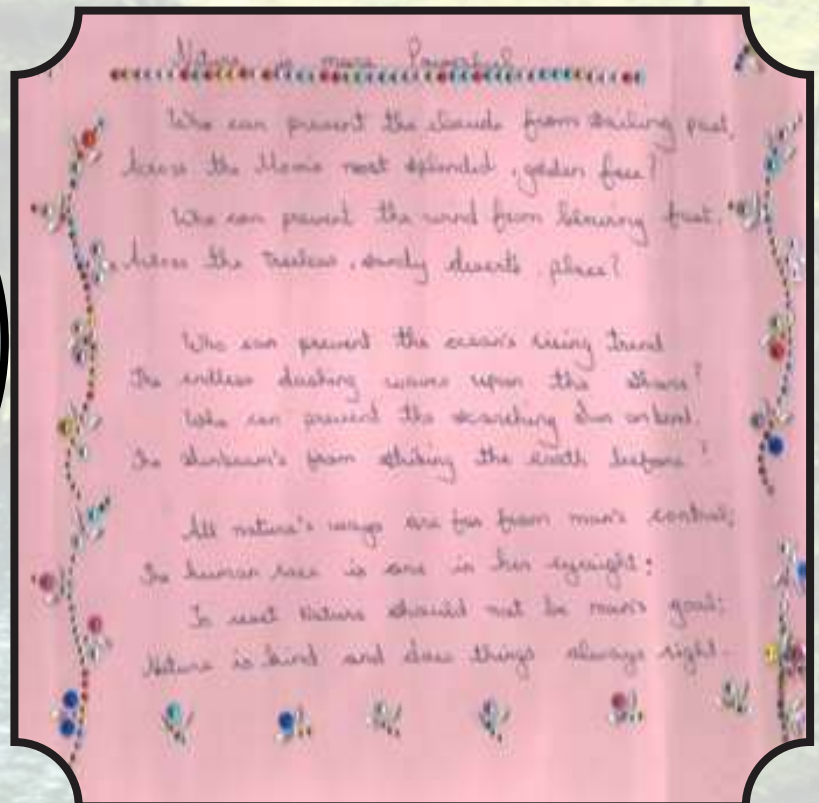 Nature is more Powerful
Who can prevent the clouds from sailing past,
Across the Moon's most splendid, golden face?
Who can prevent the wind from blowing fast,
Across the treeless, sandy desert's place?
Who can prevent the ocean's rising trend
The endless dashing waves upon the shore?
Who can prevent the scorching Sun on bend.
The Sunbeam's from striking the earth before?
All nature's ways are far from man's control;
The human race is one in her eyesight:
To Nature should not be man's goal;
Nature is kind and does things always right.